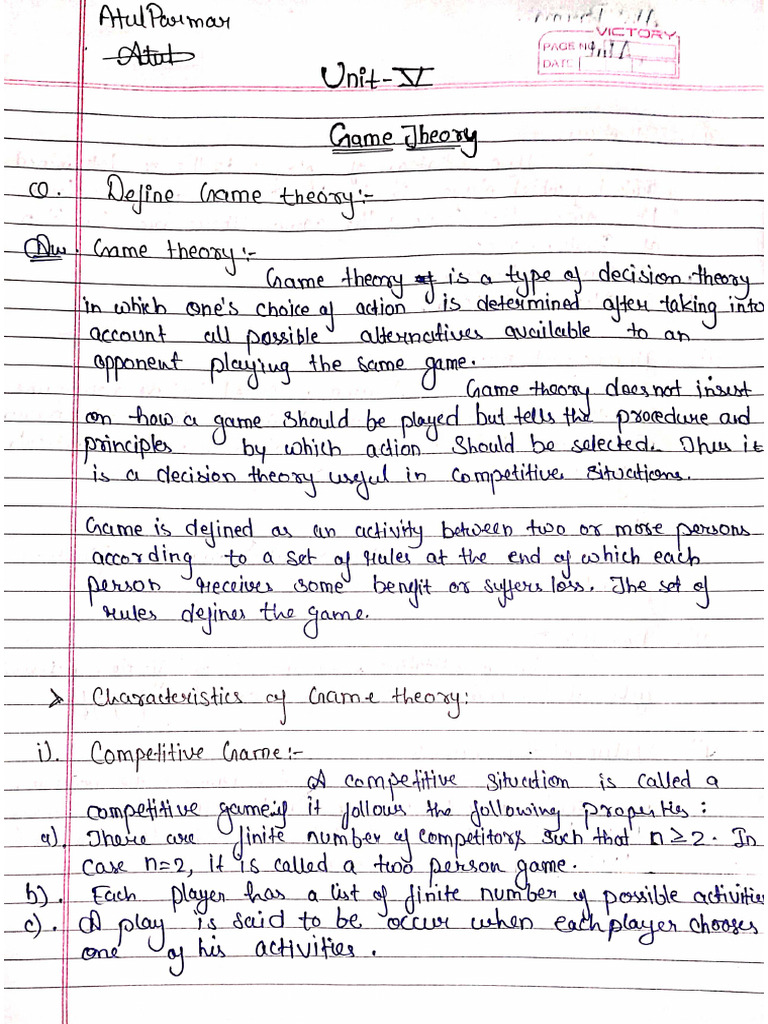 Atul Parmar
Atul
VICTORY
PAGE NO.
DATE
Unit-V
Game Theory
Q. Define Game theory:-
Ans. Game theory:-
Game theory is a type of decision theory
in which one's choice of action is determined after taking into
account all possible alternatives available to an
opponent playing the same game.
Game theory does not insist
on how a game should be played but tells the procedure and
principles by which action should be selected. Thus it
is a decision theory useful in competitive situations.
Game is defined as an activity between two or more persons
according to a set of rules at the end of which each
person receives some benefit or suffers loss. The set of
rules defines the game.
> Characteristics of Game theory:
i). Competitive Game:-
A competitive situation is called a
competitive game if it follows the following properties:
a). There are finite number of competitors such that n ≥ 2. In
case n=2, it is called a two person game.
b). Each player has a list of finite number of possible activities
c). A play is said to be occur when each player chooses
one of his activities.